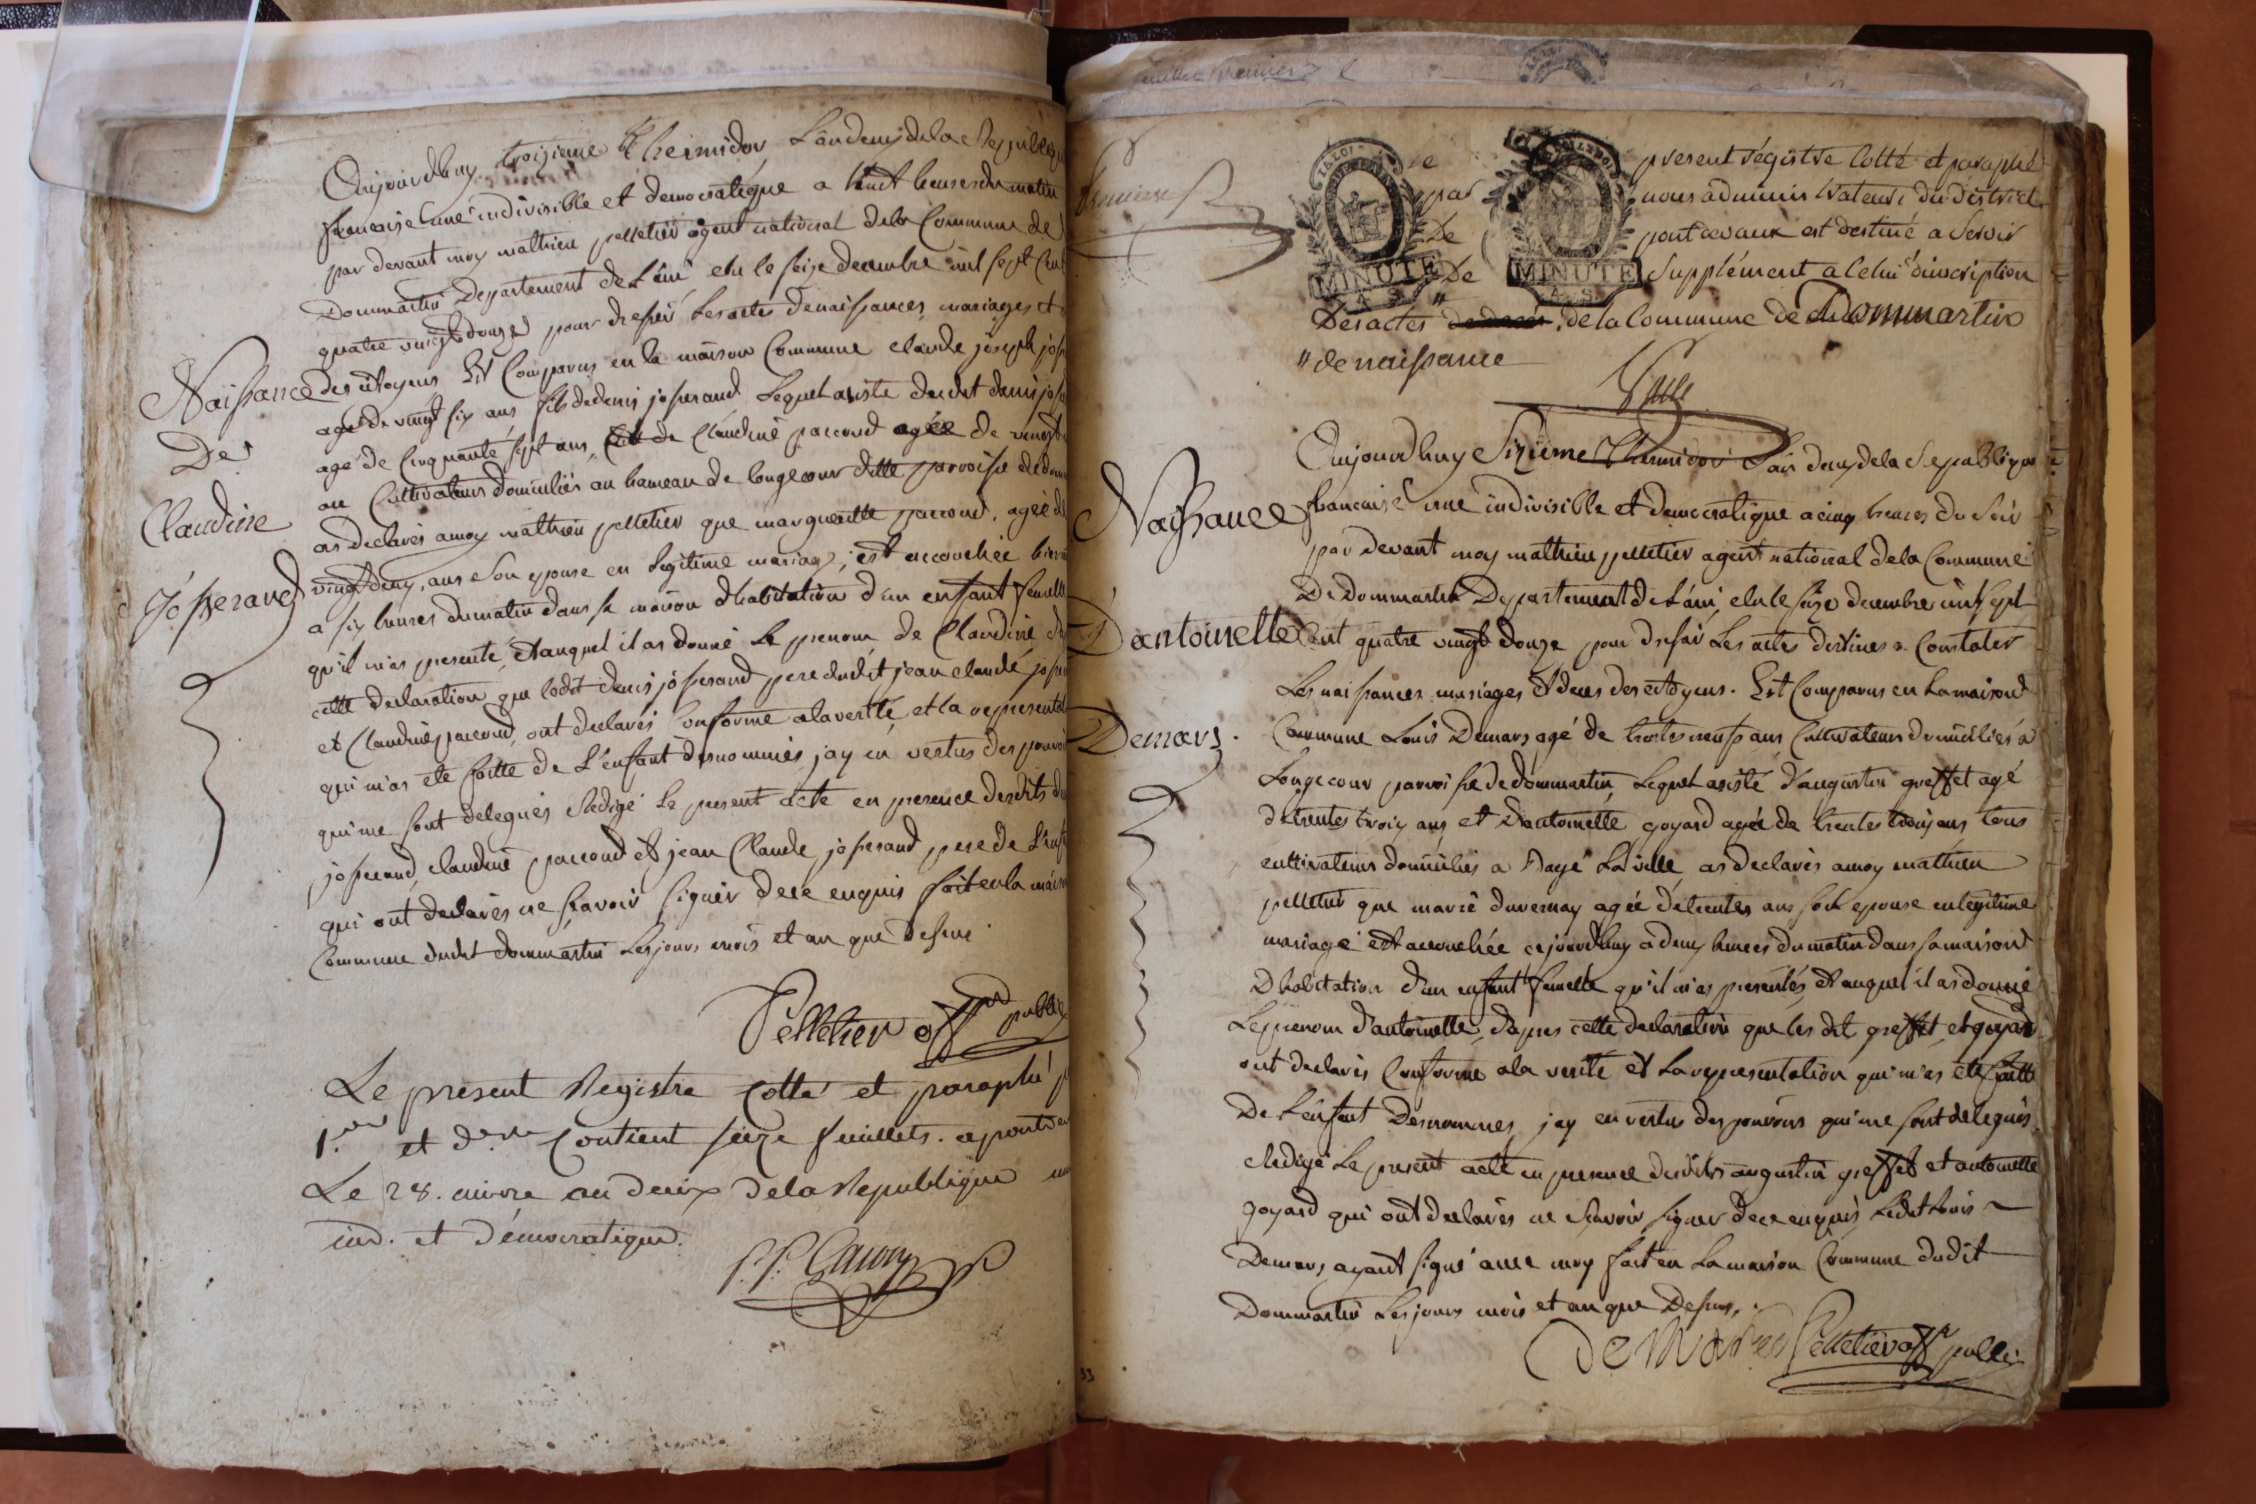 Aujourdhuy troizieme thermidor Landeuxdela Republiq
francaise une indivisible et democratique a huit heures du matin
par devant moy mathieu pelletier agent national dela Commune de
Dommartin Departement de L'ain elu le seize decembre mil sept Cent
quatre vingt douze pour dresser Les actes denaissances mariages et
des citoyens Est Comparus en la maison Commune claude joseph jos
agé de vingt six ans fils dedenis josserand Lequel assisté dudit denis jos
agé de Cinquante sept ans, et de Claudine paccoud agée de vingt
an Cultivateurs domiciliés au hameau de longecour ditte parroisse dedom
as declarés amoy mathieu pelletier que margueritte paccoud, agée de
vingtdeux, ans son epouse en Legitime mariage, est accouchée hier
a six heures dumatin dans sa maison dhabitation d'un enfant femelle
qu'il m'as presenté, et auquel il as donné Le prenom de Claudine d
cette declaration que ledit denis josserand pere dudit jean claude joss
et Claudine paccoud, ont declarés Conforme alaverité, et la representat
qui m'as eté faitte de L'enfant denommés jay en vertus des pouvoi
qui me sont delegués Redigé Le present acte en presence desdits de
josserand, claudine paccoud et jean Claude josserand pere de L'enf
qui ont declarés ne sçavoir signer dece enquis fait en la mais
Commune dudit dommartin Les jours mois et an que dessus.
Naissance
De
Claudine
Josserand
Pelletier offr public
Le present Registre Cotté et paraphé p
1.er et d.er Contient seize feuillets. a pontde
Le 28. nivose an deux dela Republique un
ind. et démocratique.
premiere
LA LOI
MINUTE
MINUTE
Le present régistre Cotté et paraphé
par nous administrateurs du district
De pontdevaux est destiné a Servir
De Supplément a Celui d'inscription
Des actes de deces, de la Commune de Dommartin
" de naissance
Aujourdhuy Sixieme Thermidor Lan deuxdela Republique
francaise une indivisible et democratique acinq heures du Soir
par devant moy mathieu pelletier agent national dela Commune
De dommartin Departement de L'ain, elu le seize decembre mil sept
Cent quatre vingt douze pour dresser Les actes destines a Constater
Les naissances mariages et deces des citoyens. Est Comparus en La maison
Commune Louis Demars agé de trente neuf ans Cultivateur domiciliés a
Longecour parroisse de dommartin, Lequel assisté d'augustin greffet agé
detrentes troix ans et d'antoinette goyard agée de trentes troix ans tous
cultivateurs domiciliés a Bagé La ville, as declarés amoy mathieu
pelletier que marie duvernay agée detrentes ans son epouse en legitime
mariage est accouchée cejourdhuy a deux heures dumatin dans sa maison
D'habitation d'un enfant femelle qu'il m'as presentés et auquel il as donné
Le prenom d'antoinette, dapres cette declaration que les dit greffet et goyard
ont declarés Conforme ala verité et La representation qui m'as eté faitte
De L'enfant Denommés jay en vertus des pouvoirs qui me sont delegués
Redigé Le present acte en presence desdits augustin greffet et antoinette
goyard qui ont declarés ne sçavoir signer dece enquis, Ledit Louis
Demars, ayant signé avec moy fait en La maison Commune dudit
Dommartin Les jours mois et an que Dessus,.
Naissance
D'antoinette
Demars.
Demars Pelletier offr public
33